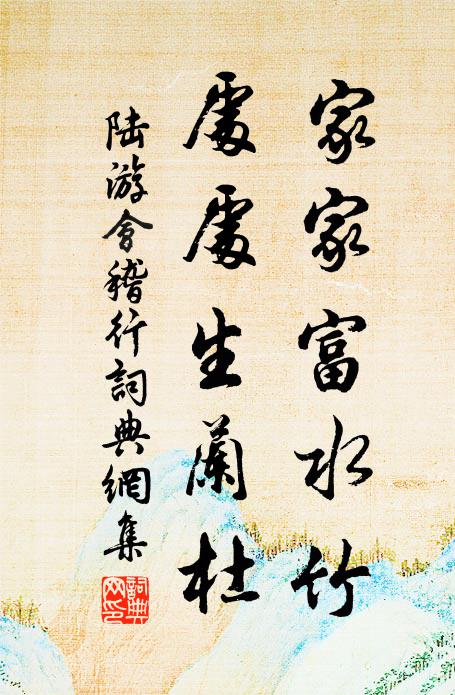 家家富水竹
處處生蘭杜
陸游會稽行詞典網集
詞典網印